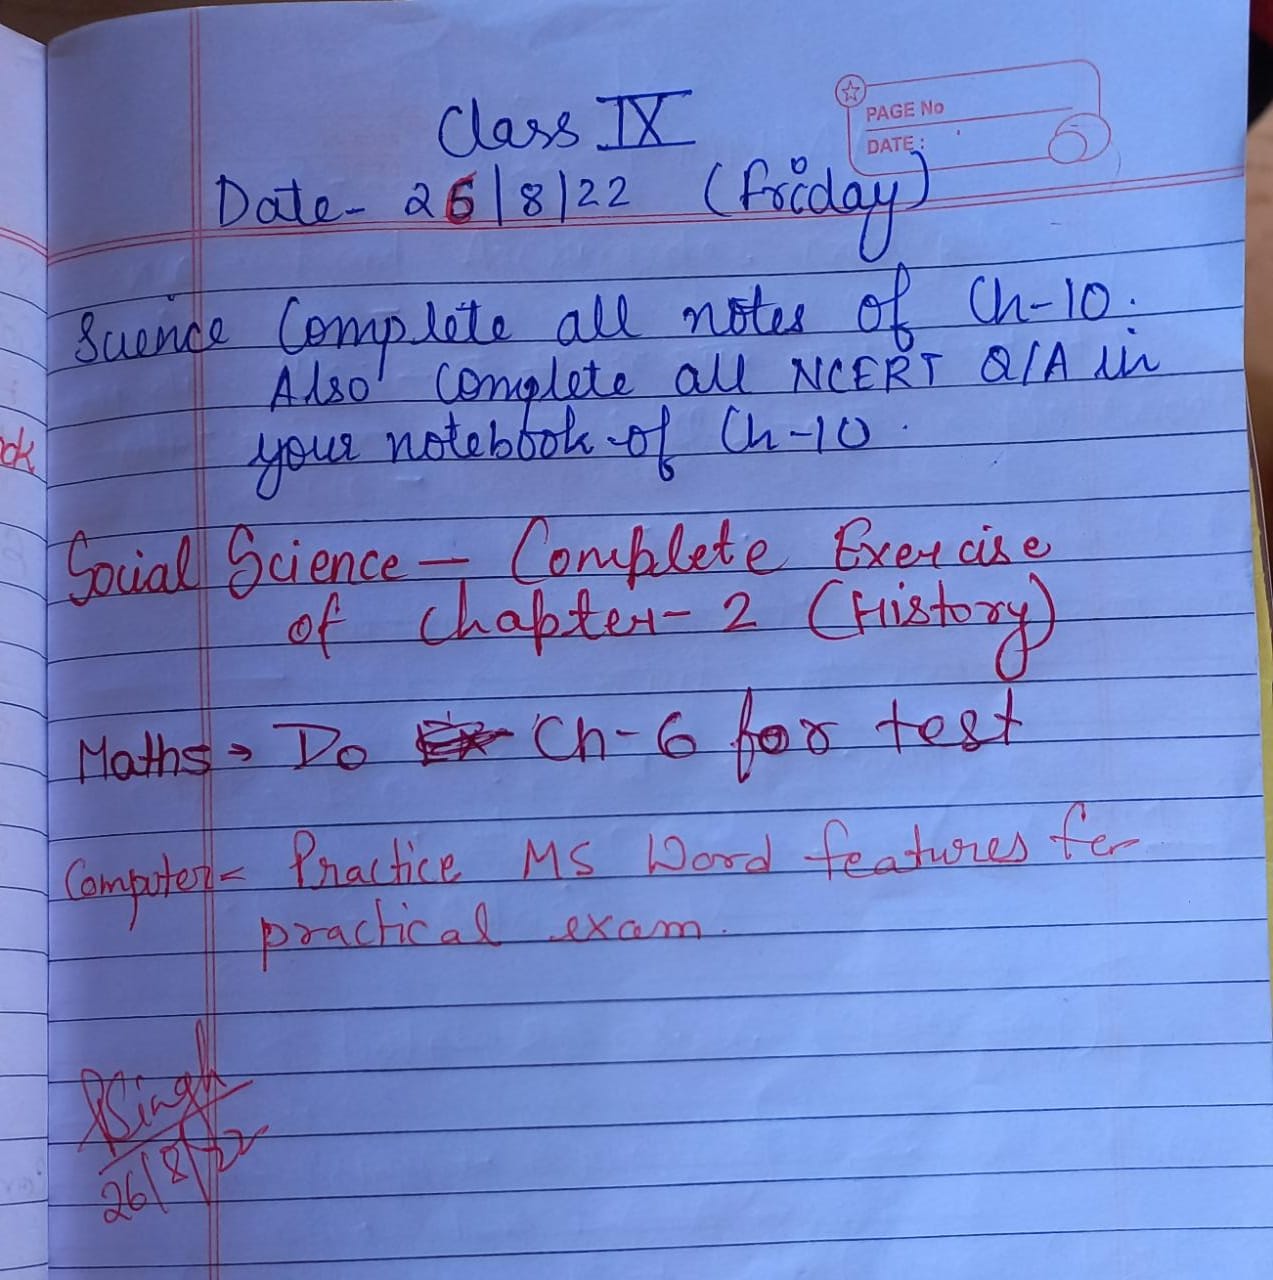 Class IX
PAGE No
DATE:
Date- 26/8/22 (friday)
Science Complete all notes of Ch-10.
Also complete all NCERT Q/A in
your notebook of Ch-10.
ck
Social Science - Complete Exercise
of Chapter- 2 (History)
Maths → Do Ch-6 for test
Computer - Practice MS Word features for
practical exam.
Singh
26/8/22